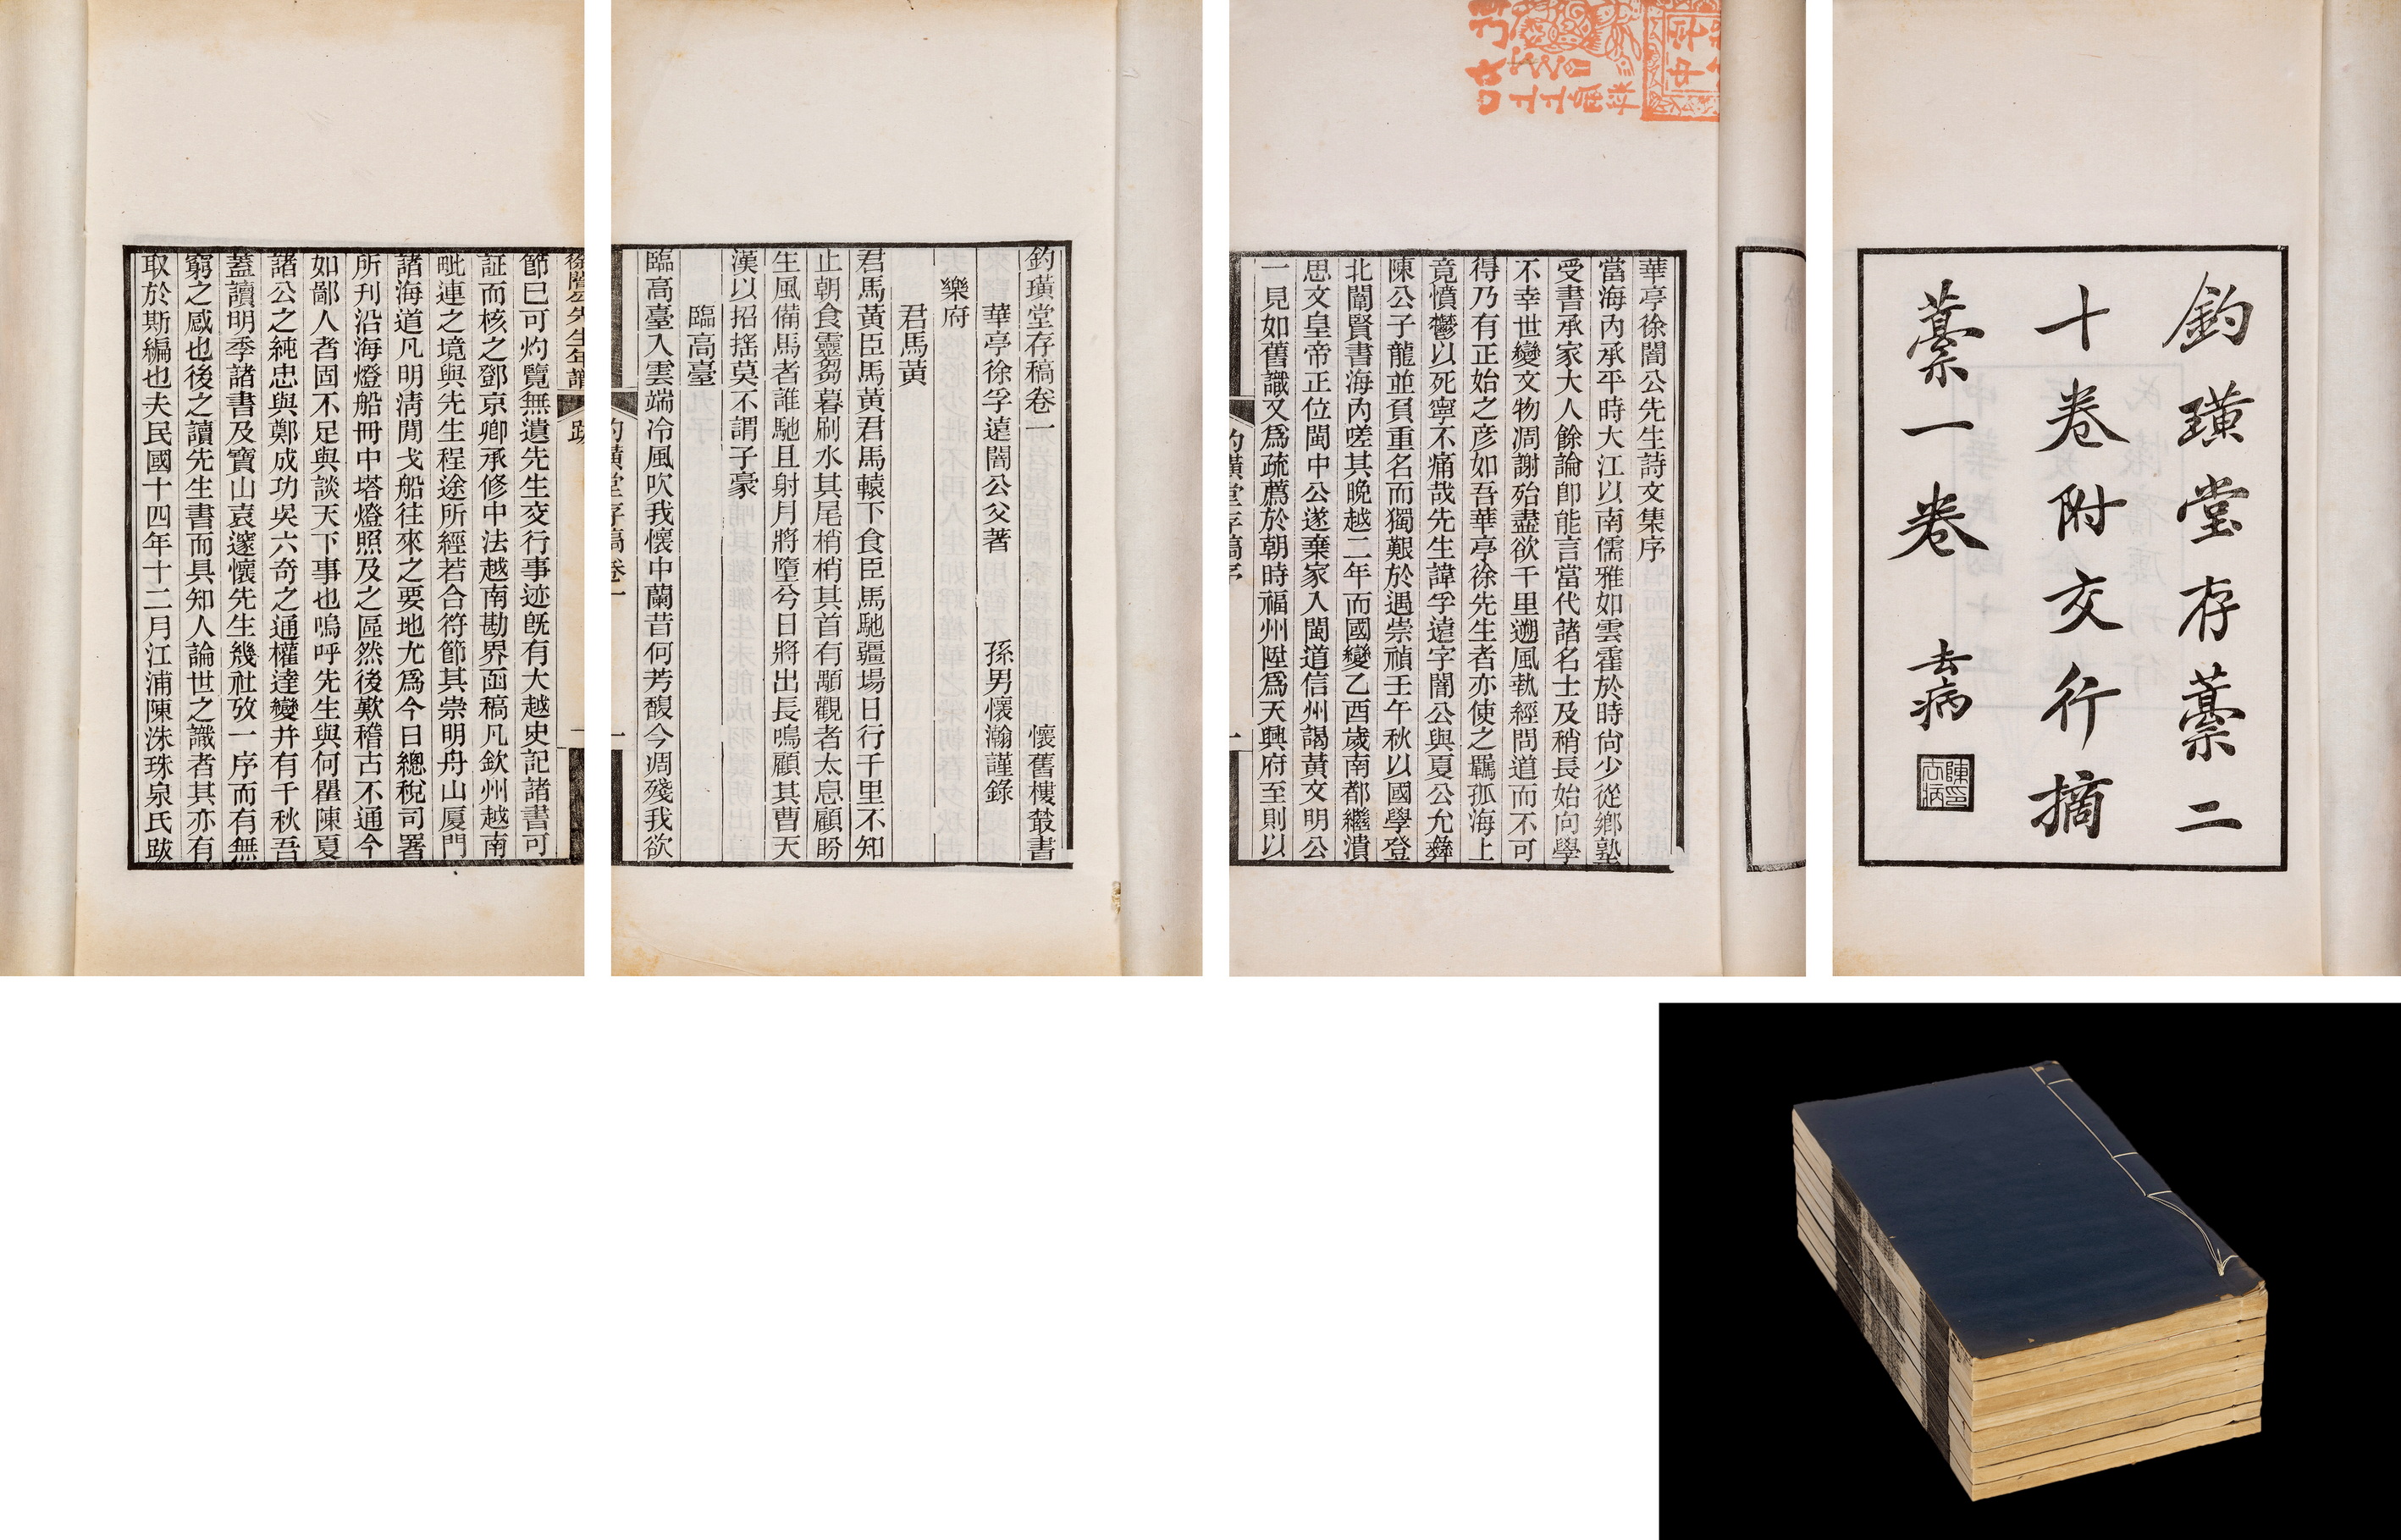 釣璜堂存藁二
十卷附交行摘
藁一卷
去病
華亭徐闇公先生詩文集序
當海內承平時大江以南儒雅如雲霍於時尙少從鄉塾
受書承家大人餘論卽能言當代諸名士及稍長始向學
不幸世變文物凋謝殆盡欲千里遡風執經問道而不可
得乃有正始之彥如吾華亭徐先生者亦使之羈孤海上
竟憤鬱以死寧不痛哉先生諱孚遠字闇公與夏公允彝
陳公子龍並負重名而獨艱於遇崇禎壬午秋以國學登
北闈賢書海內嗟其晚越二年而國變乙酉歲南都繼潰
思文皇帝正位閩中公遂棄家入閩道信州謁黃文明公
一見如舊識又爲疏薦於朝時福州陞爲天興府至則以
釣璜堂存稿卷一 懷舊樓叢書
華亭徐孚遠闇公父著 孫男懷瀚謹錄
樂府
君馬黃
君馬黃臣馬黃君馬轅下食臣馬馳疆場日行千里不知
止朝食靈芻暮刷水其尾梢梢其首有顒觀者太息顧盼
生風備馬者誰馳且射月將墮兮日將出長鳴顧其曹天
漢以招搖莫不謂子豪
臨高臺
臨高臺入雲端冷風吹我懷中蘭昔何芳馥今凋殘我欲
釣璜堂存稿卷一
一
徐闇公先生年譜 跋
節已可灼覽無遺先生交行事迹旣有大越史記諸書可
証而核之鄧京卿承修中法越南勘界函稿凡欽州越南
毗連之境與先生程途所經若合符節其崇明舟山厦門
諸海道凡明清閒戈船往來之要地尤爲今日總稅司署
所刊沿海燈船冊中塔燈照及之區然後歎稽古不通今
如鄙人者固不足與談天下事也嗚呼先生與何瞿陳夏
諸公之純忠與鄭成功吳六奇之通權達變幷有千秋吾
蓋讀明季諸書及寶山袁邃懷先生幾社攷一序而有無
窮之感也後之讀先生書而具知人論世之識者其亦有
取於斯編也夫民國十四年十二月江浦陳洙珠泉氏跋